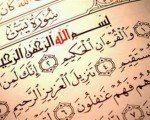 سُورَةُ يسٓ
بِسْمِ اللَّهِ الرَّحْمَٰنِ الرَّحِيمِ
وَالْقُرْءَانِ الْحَكِيمِ ٢ إِنَّكَ لَمِنَ
تَنزِيلَ الْعَزِيزِ الرَّحِيمِ ٥
فَهُمْ غَٰفِلُونَ ٦